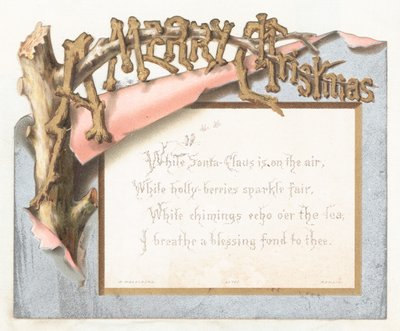 A Merry Christmas
While Santa-Claus is on the air,
While holly-berries sparkle fair,
While chimings echo o'er the lea,
I breathe a blessing fond to thee.